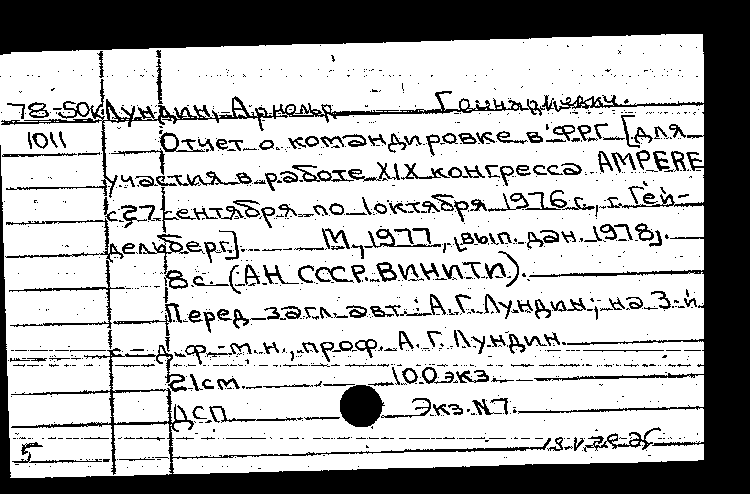 78-50к Лундин, Арнольд Геннадиевич.
1011 Отчет о командировке в ФРГ [для
участия в работе XIX конгресса AMPERE
с 27 сентября по 1 октября 1976 г., г. Гей-
дельберг]. М., 1977, [вып. дан. 1978].
8 с. (АН СССР. ВИНИТИ).
Перед загл. авт.: А.Г. Лундин; на 3-й
с. - д. ф.-м.н., проф. А. Г. Лундин.
21 см. 100 экз.
ДСП Экз. N 7.
5